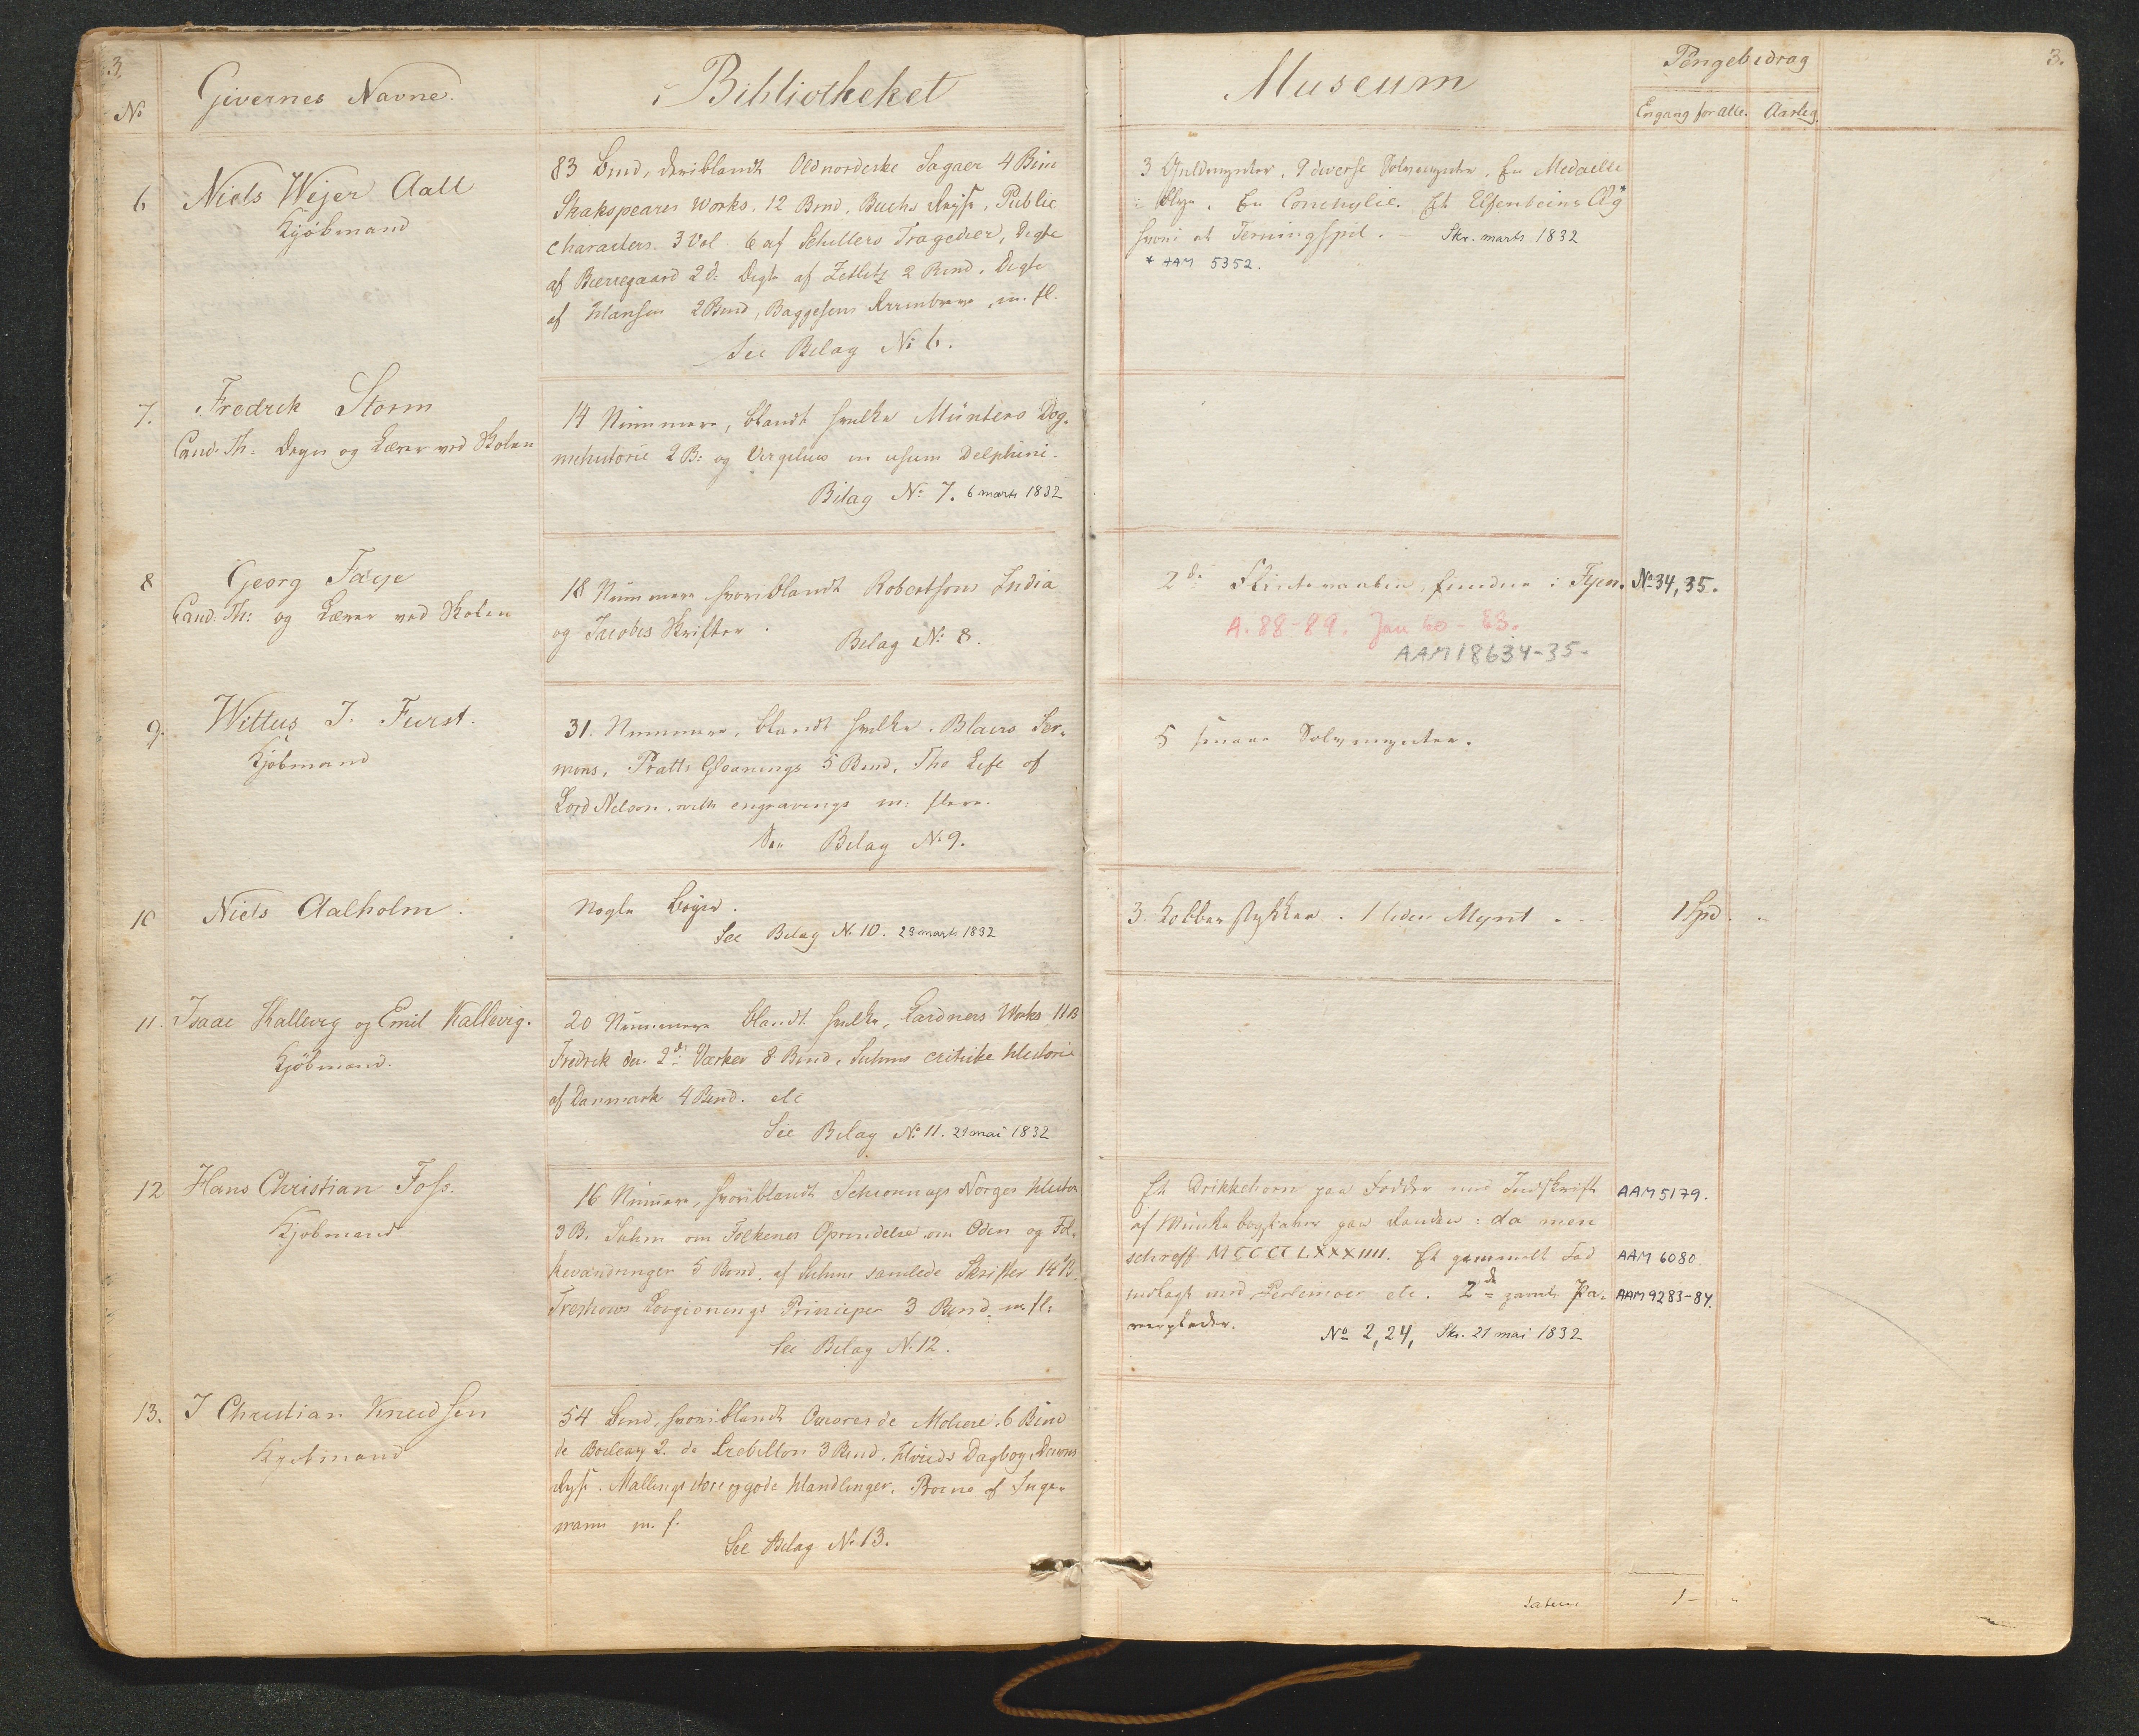 3.
No
Givernes Navne.
Bibliotheket
Museum
Pengebidrag
Engang for alle. Aarlig.
3.
6
Niels Wejer Aall
Kjøbmand
83 Bind, deriblandt Oldnordiske Sagaer 4 Bind
Shakspeares Works. 12 Bind, Buchs Reise, Public
characters. 3 Vol. 6 af Schillers Tragedier, Digte
af Bierregaard 2 d: Digte af Zetlitz 2 Bind. Digte
af Hansen 2 Bind, Baggesens Rimbreve, m. fl.
See Bilag No 6.
3 Guldmynter, 9 diverse Sølvmynter, En Medaille
i Blye. En Conchylie. Et Elfenbeins Æg*
hvori et Terningspil. — Skr. marts 1832
* AAM 5352.
7.
Fredrik Storm
Cand. Th: Degn og Lærer ved Skolen
14 Nummere, blandt hvilke Münters Dog-
mehistorie 2 B: og Virgilius in usum Delphini.
Bilag No 7. 6 marts 1832
8
Georg Faye
Cand. Th: og Lærer ved Skolen
18 Nummere hvoriblandt Robertsons India
og Jacobis Skrifter.
Bilag No 8.
2de Flintevaaben, fundne i Fyen. No 34, 35.
A. 88-89. Jau 60-63.
AAM 18634-35.
9.
Wittus J. Furst.
Kjøbmand
31. Nummere, blandt hvilke. Blairs Ser-
mons, Pratts Gleanings 5 Bind, The Life of
Lord Nelson, with engravings m: flere.
See Bilag No 9.
5 Sølvmynter.
10
Niels Aalholm.
Nogle Bøger.
See Bilag N. 10. 23 marts 1832
3. Kobberstykker. 1 liden Mynt.
1 Spd.
11.
Isaac Kallevig og Emil Kallevig.
Kjøbmænd.
20 Nummere blandt hvilke, Lardners Works 11 B
Fredrik den 2d: Værker 8 Bind, Suhms critiske Historie
af Danmark 4 Bind. etc
See Bilag No 11. 21 mai 1832
12
Hans Christian Foss.
Kjøbmand
16 Numere, hvoriblandt Schiønnings Norges Historie
3 B. Suhm om Folkenes Oprindelse om Odin og Fol-
kevandringer 5 Bind, af Suhms samlede Skrifter 14 B.
Treschows Lovgivnings Principer 3 Bind m. fl:
See Bilag N. 12.
Et Drikkehorn paa Fødder med Indskrift
af Munke bogstaver paa Randen: da men
schreff MCCCCLXXXIIII. Et gammelt Fad
indlagt med Perlemoer etc. 2de gamle Pa-
neerplader.
No 2, 24, Skr. 21 mai 1832
AAM 5179.
AAM 6080
AAM 9283-84.
13.
J Christian Knudsen
Kjøbmand
54 Bind, hvoriblandt Ouvres de Moliere, 6 Bind
de Boileau 2. de Crebillon 3 Bind, Hviids Dagbog,
Reise. Mallings store og gode Handlinger, Procne af Inge-
mann m. f.
See Bilag No 13.
Latus
1 -